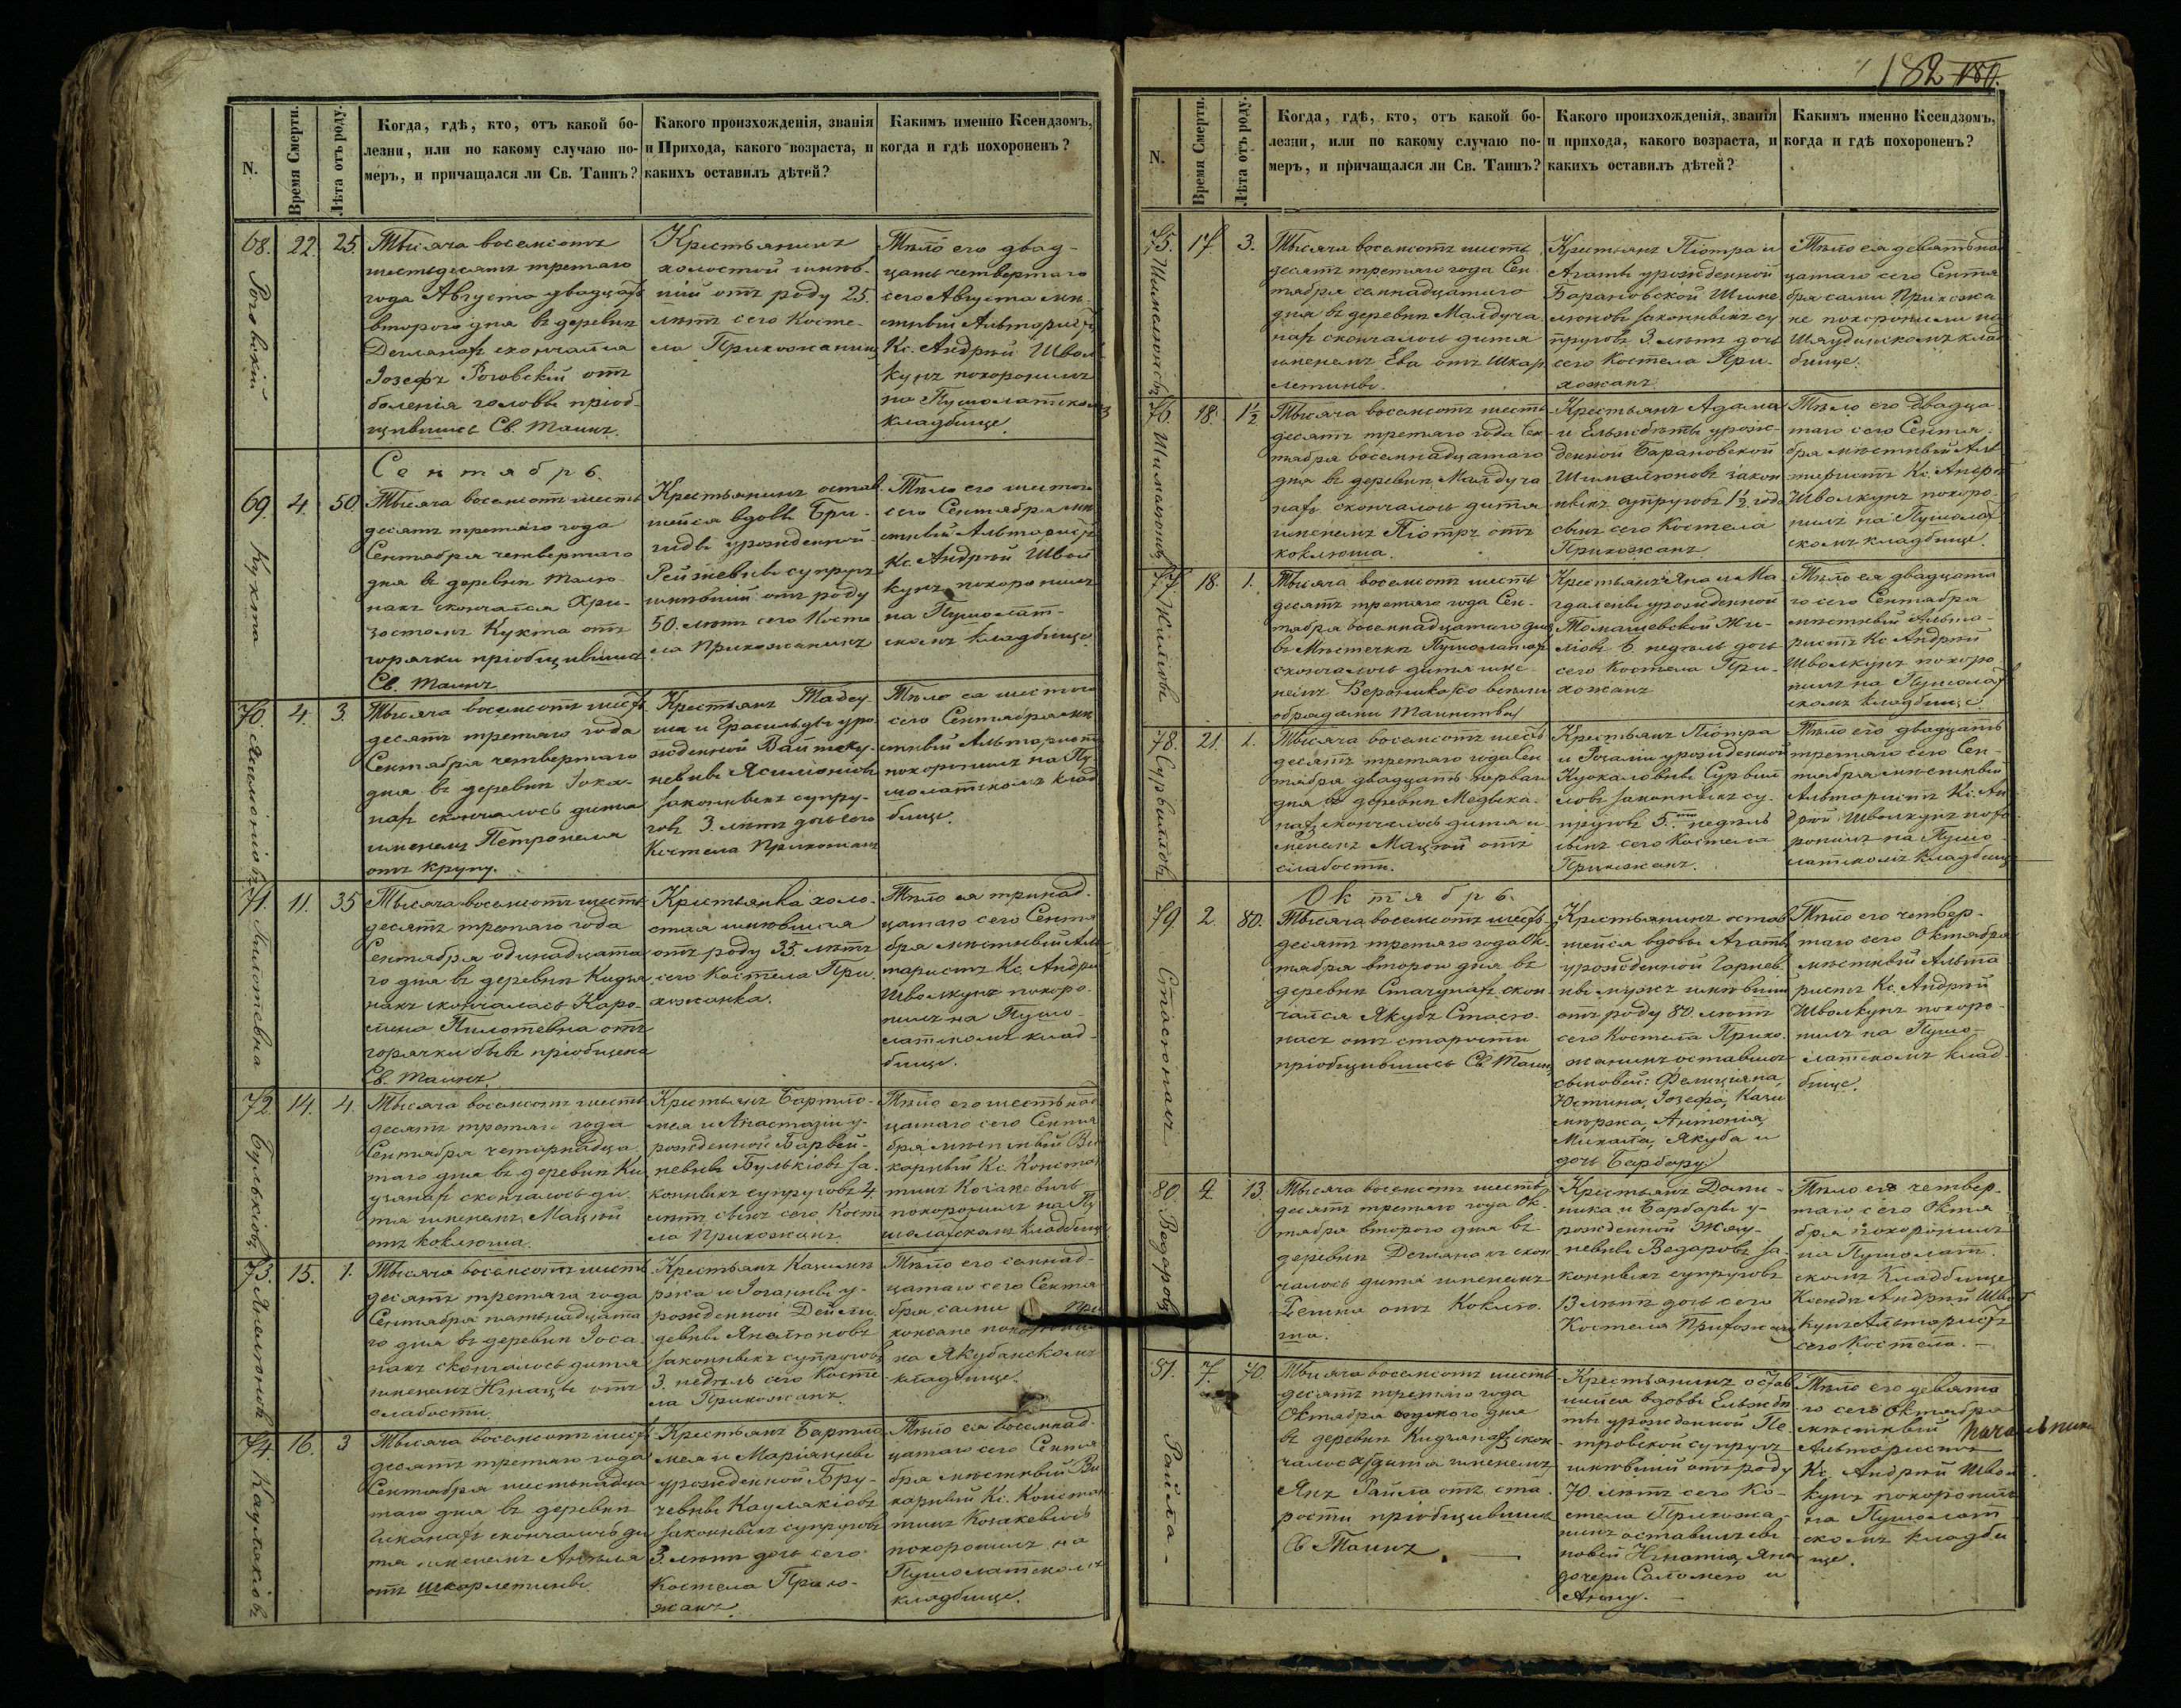 182 180.
N.
Время Смерти.
Лѣта отъ роду.
Когда, гдѣ, кто, отъ какой бо-
лезни, или по какому случаю по-
меръ, и причащался ли Св. Таинъ?
Какого произхожденія, званія
и Прихода, какого возраста, и
какихъ оставилъ дѣтей?
Каким именно Ксендзомъ,
когда и гдѣ похороненъ?
68. Роговскій
22. 25.
Тысяча восемсотъ
шестьдесятъ третяго
года Августа двадцать
второго дня въ деревни
скончался
Іозефъ Роговскій отъ
боленія головы пріоб-
щившись Св. Таинъ.
Крестьянинъ
холостой имѣв-
шій отъ роду 25.
лѣтъ сего Косте-
ла Прихожанинъ
Тѣло его двад-
цать четвертаго
сего Августа мѣ-
стный Альтаристъ
Кс. Андрей Швол-
кунъ похоронилъ
на Пушолатскомъ
кладбище.
Сентябрь.
69. Кукта
4. 50.
Тысяча восемсотъ шесть
десятъ третяго года
Сентября четвертаго
дня въ деревни
скончался Хри-
зостомъ Кукта отъ
горячки пріобщившись
Св. Таинъ
Крестьянинъ остав
шейся вдовы Бри-
гиды урожденной
супругъ
имѣвшій отъ роду
50. лѣтъ сего Косте
ла Прихожанинъ
Тѣло его шестого
сего Сентября мѣ
стный Альтаристъ
Кс. Андрей Швол
кунъ похоронилъ
на Пушолат-
скомъ кладбище.
70.
4. 3.
Тысяча восемсотъ шесть
десятъ третяго года
Сентября четвертаго
дня въ деревни
скончалось дитя
именемъ Петронеля
отъ крупу.
Крестьянъ Тадеу-
ша и уро-
жденной
законныхъ супру-
говъ 3. лѣтъ дочь сего
Костела Прихожанъ
Тѣло ея шестого
сего Сентября мѣ
стный Альтаристъ
похоронилъ на Пу-
шолатскомъ клад
бище.
71. Пилотевна
11. 35
Тысяча восемсотъ шесть
десятъ третяго года
Сентября одинадцата
го дня въ деревни
скончалась Каро-
лина Пилотевна отъ
горячки бывъ пріобщена
Св. Таинъ.
Крестьянка холо-
стая имѣвшая
отъ роду 35. лѣтъ
сего Костела При
хожанка.
Тѣло ея тринад-
цатаго сего Сентя
бря мѣстный Аль
таристъ Кс. Андрей
Шволкунъ похоро-
нилъ на Пушо-
латскомъ клад-
бище.
72. Булькіовъ
14. 4.
Тысяча восемсотъ шесть
десятъ третяго года
Сентября четырнадца
таго дня въ деревни
скончалось ди
тя именемъ Мацѣй
отъ коклюша.
Крестьянъ Бартло-
мея и Анастазіи у-
рожденной
Булькіовъ за-
конныхъ супруговъ 4
лѣтъ сынъ сего Косте
ла Прихожанъ.
Тѣло его шестьнад
цатаго сего Сентя
бря мѣстный Ви
карный Кс. Констан
тинъ Козакевичъ
похоронилъ на Пу
шолатскомъ кладбище
73.
15. 1.
Тысяча восемсотъ шесть
десятъ третяго года
Сентября пятьнадцата
го дня въ деревни
скончалось дитя
именемъ Игнацы отъ
слабости.
Крестьянъ Казими
ржа и Іоганны у-
рожденной
законныхъ супруговъ
3. недѣль сего Косте
ла Прихожанъ.
Тѣло его семнад-
цатаго сего Сентя
бря сами При
хожане похоронили
на Якубанскомъ
кладбище.
74. Каулякіовъ
16. 3
Тысяча восемсотъ шесть
десятъ третяго года
Сентября шестьнадца
таго дня въ деревни
скончалось ди
тя именемъ Анеля
отъ шкарлетины
Крестьянъ Бартло
мея и Маріянны
урожденной
Каулякіовъ
законныхъ супруговъ
3. лѣтъ дочь сего
Костела Прихо-
жанъ.
Тѣло ея восемнад-
цатаго сего Сентя
бря мѣстный Ви
карный Кс. Констан
тинъ Козакевичъ
похоронилъ на
Пушолатскомъ
кладбище.
N.
Время Смерти.
Лѣта отъ роду.
Когда, гдѣ, кто, отъ какой бо-
лезни, или по какому случаю по-
меръ, и причащался ли Св. Таинъ?
Какого произхожденія, званія
и прихода, какого возраста, и
какихъ оставилъ дѣтей?
Каким именно Ксендзомъ,
когда и гдѣ похороненъ?
75.
17. 3.
Тысяча восемсотъ шесть
десятъ третяго года Сен
тября семнадцатаго
дня въ деревни Майдуча
нахъ скончалось дитя
именемъ Ева отъ шкар
летины.
Крестьянъ Піотра и
Агаты урожденной
Барановской
законныхъ су
пруговъ 3. лѣтъ дочь
сего Костела При-
хожанъ.
Тѣло ея девятьна
цатаго сего Сентя
бря сами Прихожа
не похоронили на
клад
бище.
76.
18. 1½
Тысяча восемсотъ шесть
десятъ третяго года Сен
тября восемнадцатаго
дня въ деревни Майдуча
нахъ скончалось дитя
именемъ Піотръ отъ
коклюша.
Крестьянъ Адама
и Ельжбѣты урож-
денной Барановской
закон
ныхъ супруговъ 1½ года
сынъ сего Костела
Прихожанъ.
Тѣло его двадца-
таго сего Сентя-
бря мѣстный Аль
таристъ Кс. Андрей
Шволкунъ похоро-
нилъ на Пушолат
скомъ кладбище.
77. Жиліовъ
18. 1.
Тысяча восемсотъ шесть
десятъ третяго года Сен-
тября восемнадцатаго дня
въ Мѣстечки Пушолатахъ
скончалось дитя име-
немъ Вероника со всѣми
обрядами Таинства
Крестьянъ Яна и Ма
гдалены урожденной
Томашевской Жи-
ліовъ 6 недѣль дочь
сего Костела При-
хожанъ
Тѣло ея двадцата
го сего Сентября
мѣстный Альта-
ристъ Кс Андрей
Шволкунъ похоро
нилъ на Пушолат
скомъ кладбище.
78. Сурвилловъ
21. 1.
Тысяча восемсотъ шесть
десятъ третяго года Сен
тября двадцать перваго
дня въ деревни
скончалось дитя и
менемъ Мацѣй отъ
слабости.
Крестьянъ Піотра
и Розаліи урожденной
Сурвил
ловъ законныхъ су-
пруговъ 5. недѣль
сынъ сего Костела
Прихожанъ.
Тѣло его двадцать
третяго сего Сен-
тября мѣстный
Альтаристъ Кс. Ан
дрей Шволкунъ похо
ронилъ на Пушо-
латскомъ кладбище
Октябрь.
79. Стасюнасъ
2. 80.
Тысяча восемсотъ шесть
десятъ третяго года Ок-
тября второго дня въ
деревни скон
чался Якубъ Стасю-
насъ отъ старости
пріобщившись Св Таинъ
Крестьянинъ остав
шейся вдовы Агаты
урожденной
мужъ имѣвшій
отъ роду 80. лѣтъ
сего Костела Прихо-
жанинъ оставилъ
сыновей: Фелиціяна,
Юстина, Іозефа, Кази
миржа, Антонія,
Михала, Якуба и
дочь Барбару
Тѣло его четвер-
таго сего Октября
мѣстный Альта
ристъ Кс. Андрей
Шволкунъ похоро-
нилъ на Пушо-
латскомъ клад-
бище.
80. Ведаровъ
2. 13.
Тысяча восемсотъ шесть
десятъ третяго года Ок-
тября второго дня въ
деревни скон
чалось дитя именемъ
отъ коклю-
ша.
Крестьянъ Доми-
ника и Барбары у-
рожденной
Ведаровъ за-
конныхъ супруговъ
13 лѣтъ дочь сего
Костела Прихожанъ
Тѣло ея четвер-
таго сего Октя
бря похоронилъ
на Пушолат-
скомъ Кладбище
Ксендзъ Андрей Швол
кунъ Альтаристъ
сего Костела.
81. Райла
7. 70.
Тысяча восемсотъ шесть
десятъ третяго года
Октября седмого дня
въ деревни скон
чалося дитя именемъ
Янъ Райла отъ ста-
рости пріобщившись
Св Таинъ.
Крестьянинъ остав
шейся вдовы Ельжбѣ
ты урожденной Пе-
тровской супругъ
имѣвшій отъ роду
70. лѣтъ сего Ко-
стела Прихожа
нинъ оставилъ сы
новей Игнатія, Яна
дочери Саломею и
Анну.
Тѣло его девята
го сего Октября
мѣстный
Альтаристъ
Кс. Андрей Швол-
кунъ похоронилъ
на Пушолат
скомъ кладби
ще.